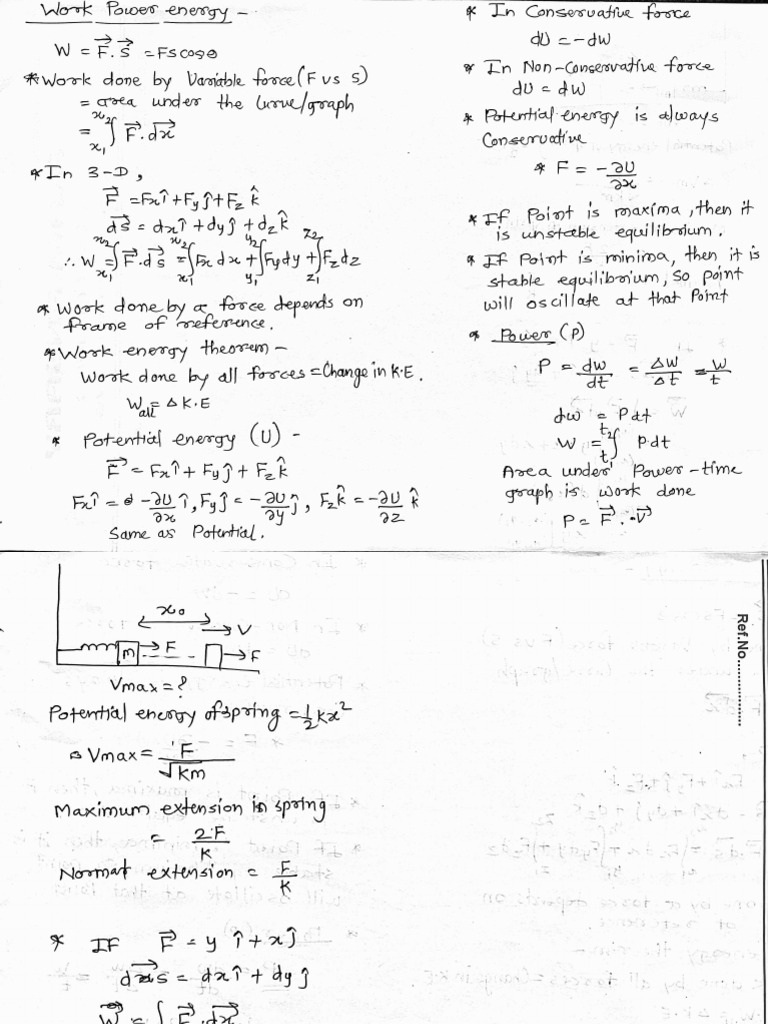 Work Power energy -
W = F⃗. s⃗ = FS cosθ
* Work done by Variable force (F vs S)
= area under the curve/graph
= ∫ₓ₁ˣ² F⃗.dx⃗
* In 3-D,
F⃗ = Fxî + Fyĵ + Fz k̂
ds⃗ = dxî + dyĵ + dz k̂
∴ W = ∫ₓ₁ˣ² F⃗.ds⃗ = ∫ₓ₁ˣ² Fx dx + ∫y₁^y₂ Fy dy + ∫z₁^z₂ Fz dz
* Work done by a force depends on
frame of reference.
* Work energy theorem -
Work done by all forces = Change in K.E.
Wall = Δ K.E
* Potential energy (U) -
F⃗ = Fxî + Fyĵ + Fz k̂
Fxî = -∂U/∂x î, Fyĵ = -∂U/∂y ĵ, Fz k̂ = -∂U/∂z k̂
Same as Potential.
* In Conservative force
dU = -dW
* In Non-Conservative force
dU = dW
* Potential energy is always
Conservative
* F = -∂U/∂x
* If Point is maxima, then it
is unstable equilibrium.
* If Point is minima, then it is
stable equilibrium, So point
will oscillate at that Point
* Power (P)
P = dw/dt = ΔW/Δt = W/t
dw = Pdt
W = ∫t₁^t₂ P.dt
Area under Power-time
graph is work done
P = F⃗.V⃗
x₀
V
m F F
Vmax = ?
Potential energy of spring = 1/2 kx²
Vmax = F/√km
Maximum extension in spring
= 2F/K
Normal extension = F/K
* IF F⃗ = y î + x ĵ
ds⃗ = dxî + dyĵ
W⃗ = ∫ F⃗.dx⃗
Ref.No..................